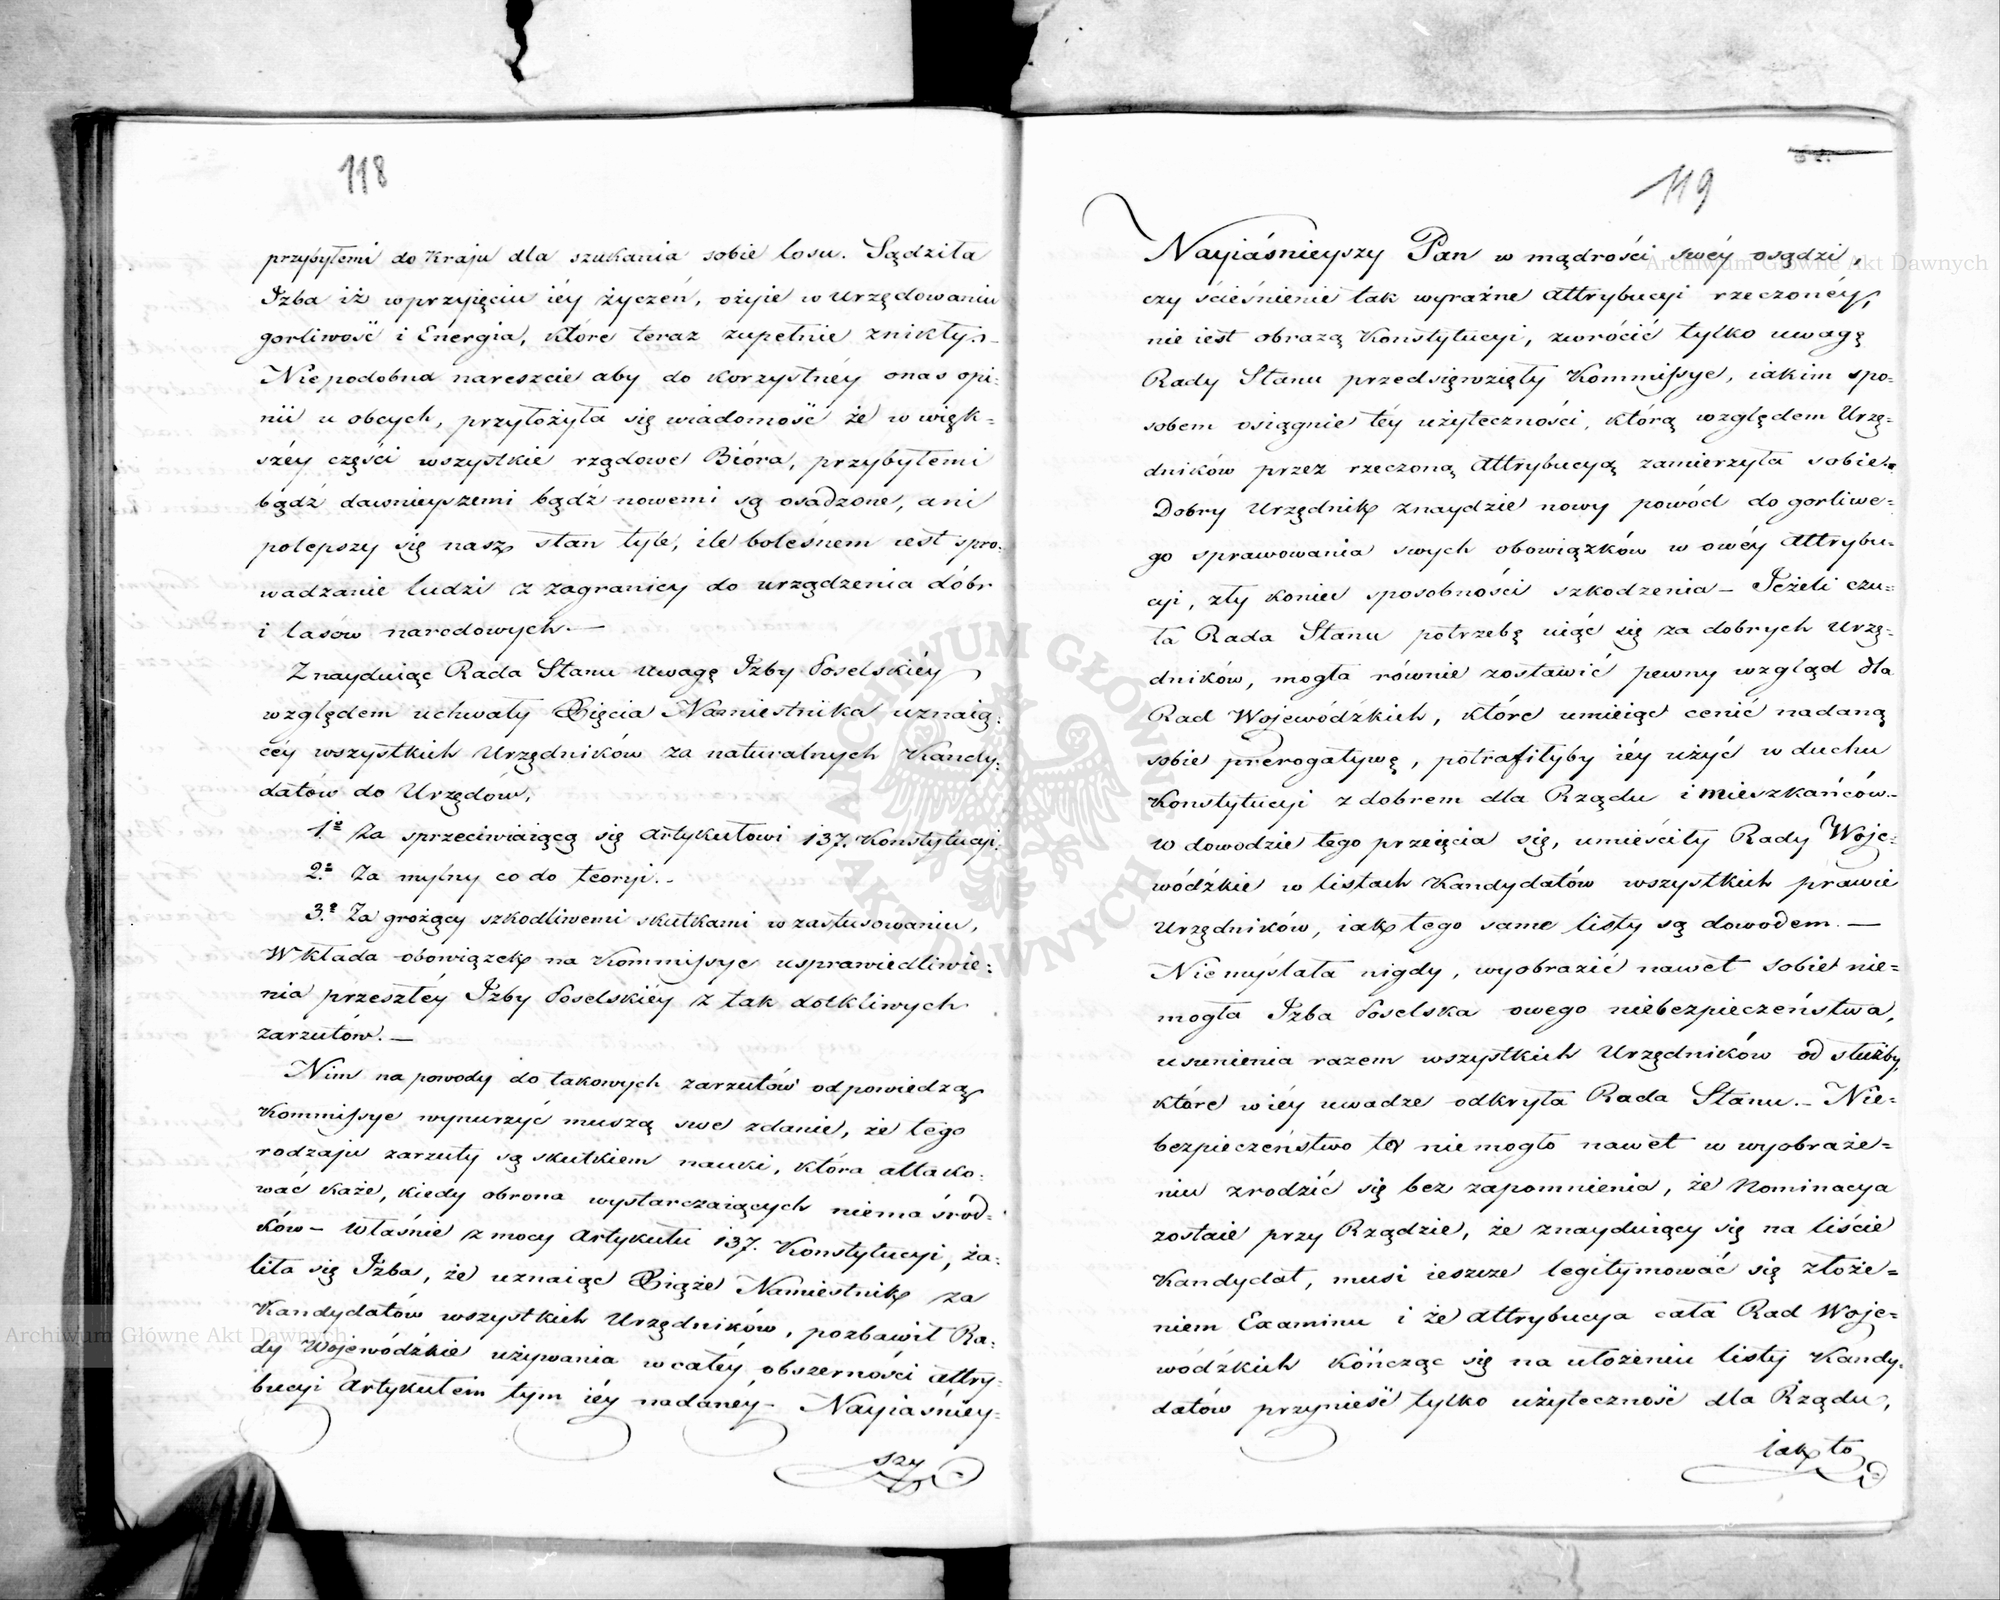 118
przybyłemi do Kraju dla szukania sobie losu. Sądziła
Izba iż w przyięciu iéy życzeń, ożyie w Urzędowaniu
gorliwość i Energia, które teraz zupełnie znikły.
Niepodobna nareszcie aby do korzystnéy o nas opi-
nii u obcych, przyłożyła się wiadomość że w więk-
széy części wszystkie rządowe Bióra, przybyłemi
bądź dawnieyszemi bądź nowemi są osadzone, ani
polepszy się nasz stan tyle, ile bolesnem iest spro-
wadzanie ludzi z zagranicy do urządzenia dóbr
i lasów narodowych. —
Znayduiąc Rada Stanu Uwagę Izby Poselskiéy
względem uchwały Xięcia Namiestnika uznaią-
céy wszystkich Urzędników za naturalnych Kandy-
datów do Urzędów,
1º Za sprzeciwiaiącą się Artykułowi 137. Konstytucyi.
2º Za mylny co do teoryi. -
3º Za grożący szkodliwemi skutkami w zastosowaniu,
Wkłada obowiązek na Kommissye usprawiedliwie-
nia przeszłéy Izby Poselskiéy z tak dotkliwych
zarzutów. —
Nim na powody do takowych zarzutów odpowiedzą
Kommissye wynurzyć muszą swe zdanie, że tego
rodzaju zarzuty są skutkiem nauki, która attako-
wać każe, kiedy obrona wystarczaiących niema środ-
ków — Właśnie z mocy Artykułu 137. Konstytucyi, ża-
liła się Izba, że uznaiąc Xiąże Namiestnik za
Kandydatów wszystkich Urzędników, pozbawił Ra-
dy Wojewódźkie używania w całéy obszerności Attry-
bucyi Artykułem tym iéy nadanéy — Nayiaśniey-
szy
119
Nayiaśnieyszy Pan w mądrości swéy osądzi,
czy ścieśnienie tak wyraźne Attrybucyi rzeczonéy,
nie iest obrazą Konstytucyi, zwrócić tylko uwagę
Rady Stanu przedsięwzięły Kommissye, iakim spo-
sobem osiągnie téy użyteczności, którą względem Urzę-
dników przez rzeczoną Attrybucyą zamierzyła sobie.
Dobry Urzędnik znaydzie nowy powód do gorliwe-
go sprawowania swych obowiązków w owéy Attrybu-
cyi, zły koniec sposobności szkodzenia — Jeżeli czu-
ła Rada Stanu potrzebę uiąć się za dobrych Urzę-
dników, mogła równie zostawić pewny wzgląd dla
Rad Wojewódźkich, które umieiąc cenić nadaną
sobie prerogatywę, potrafiłyby iéy użyć w duchu
Konstytucyi z dobrem dla Rządu i mieszkańców —
w dowodzie tego przeięcia się, umieściły Rady Woje-
wódźkie w listach Kandydatów wszystkich prawie
Urzędników, iak tego same listy są dowodem. —
Niemyślała nigdy, wyobrazić nawet sobie nie-
mogła Izba Poselska owego niebezpieczeństwa,
usunienia razem wszystkich Urzędników od służby,
które w iéy uwadze odkryła Rada Stanu. — Nie-
bezpieczeństwo to niemogło nawet w wyobraże-
niu zrodzić się bez zapomnienia, że Nominacya
zostaie przy Rządzie, że znayduiący się na liście
Kandydat, musi ieszcze legitymować się złoże-
niem Examinu i że Attrybucya cała Rad Woje-
wódźkich kończąc się na ułożeniu listy Kandy-
datów przynieść tylko użyteczność dla Rządu,
iak to
Archiwum Główne Akt Dawnych
Archiwum Główne Akt Dawnych
ARCHIWUM GŁÓWNE
AKT DAWNYCH